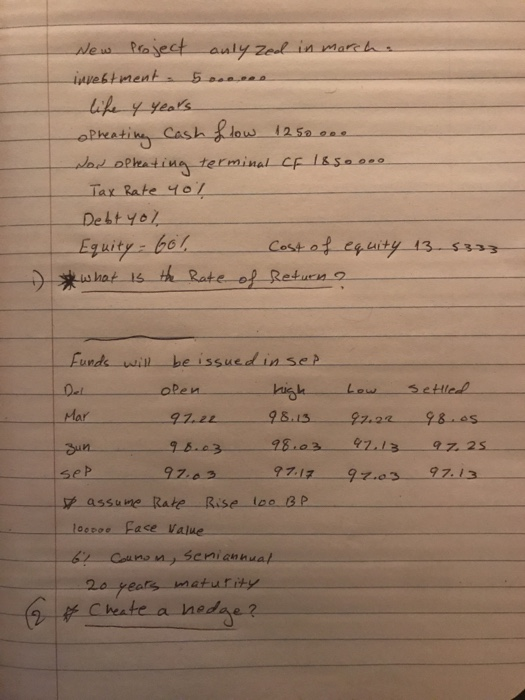 New Project anlyzed in march:
investment = 5 000 000
life 4 years
opreating Cash flow 1250 000
Non opreating terminal CF 1850 000
Tax Rate 40%
Debt 40%
Equity = 60% Cost of equity 13.5333
1) * what is the Rate of Return?
Funds will be issued in sep
Del open high Low settled
Mar 97.22 98.13 97.22 98.05
Jun 98.03 98.03 97.13 97.25
sep 97.03 97.17 97.03 97.13
* assume Rate Rise 100 BP
100000 Face Value
6% Counon, semiannual
20 years maturity
(2 * Create a hedge?